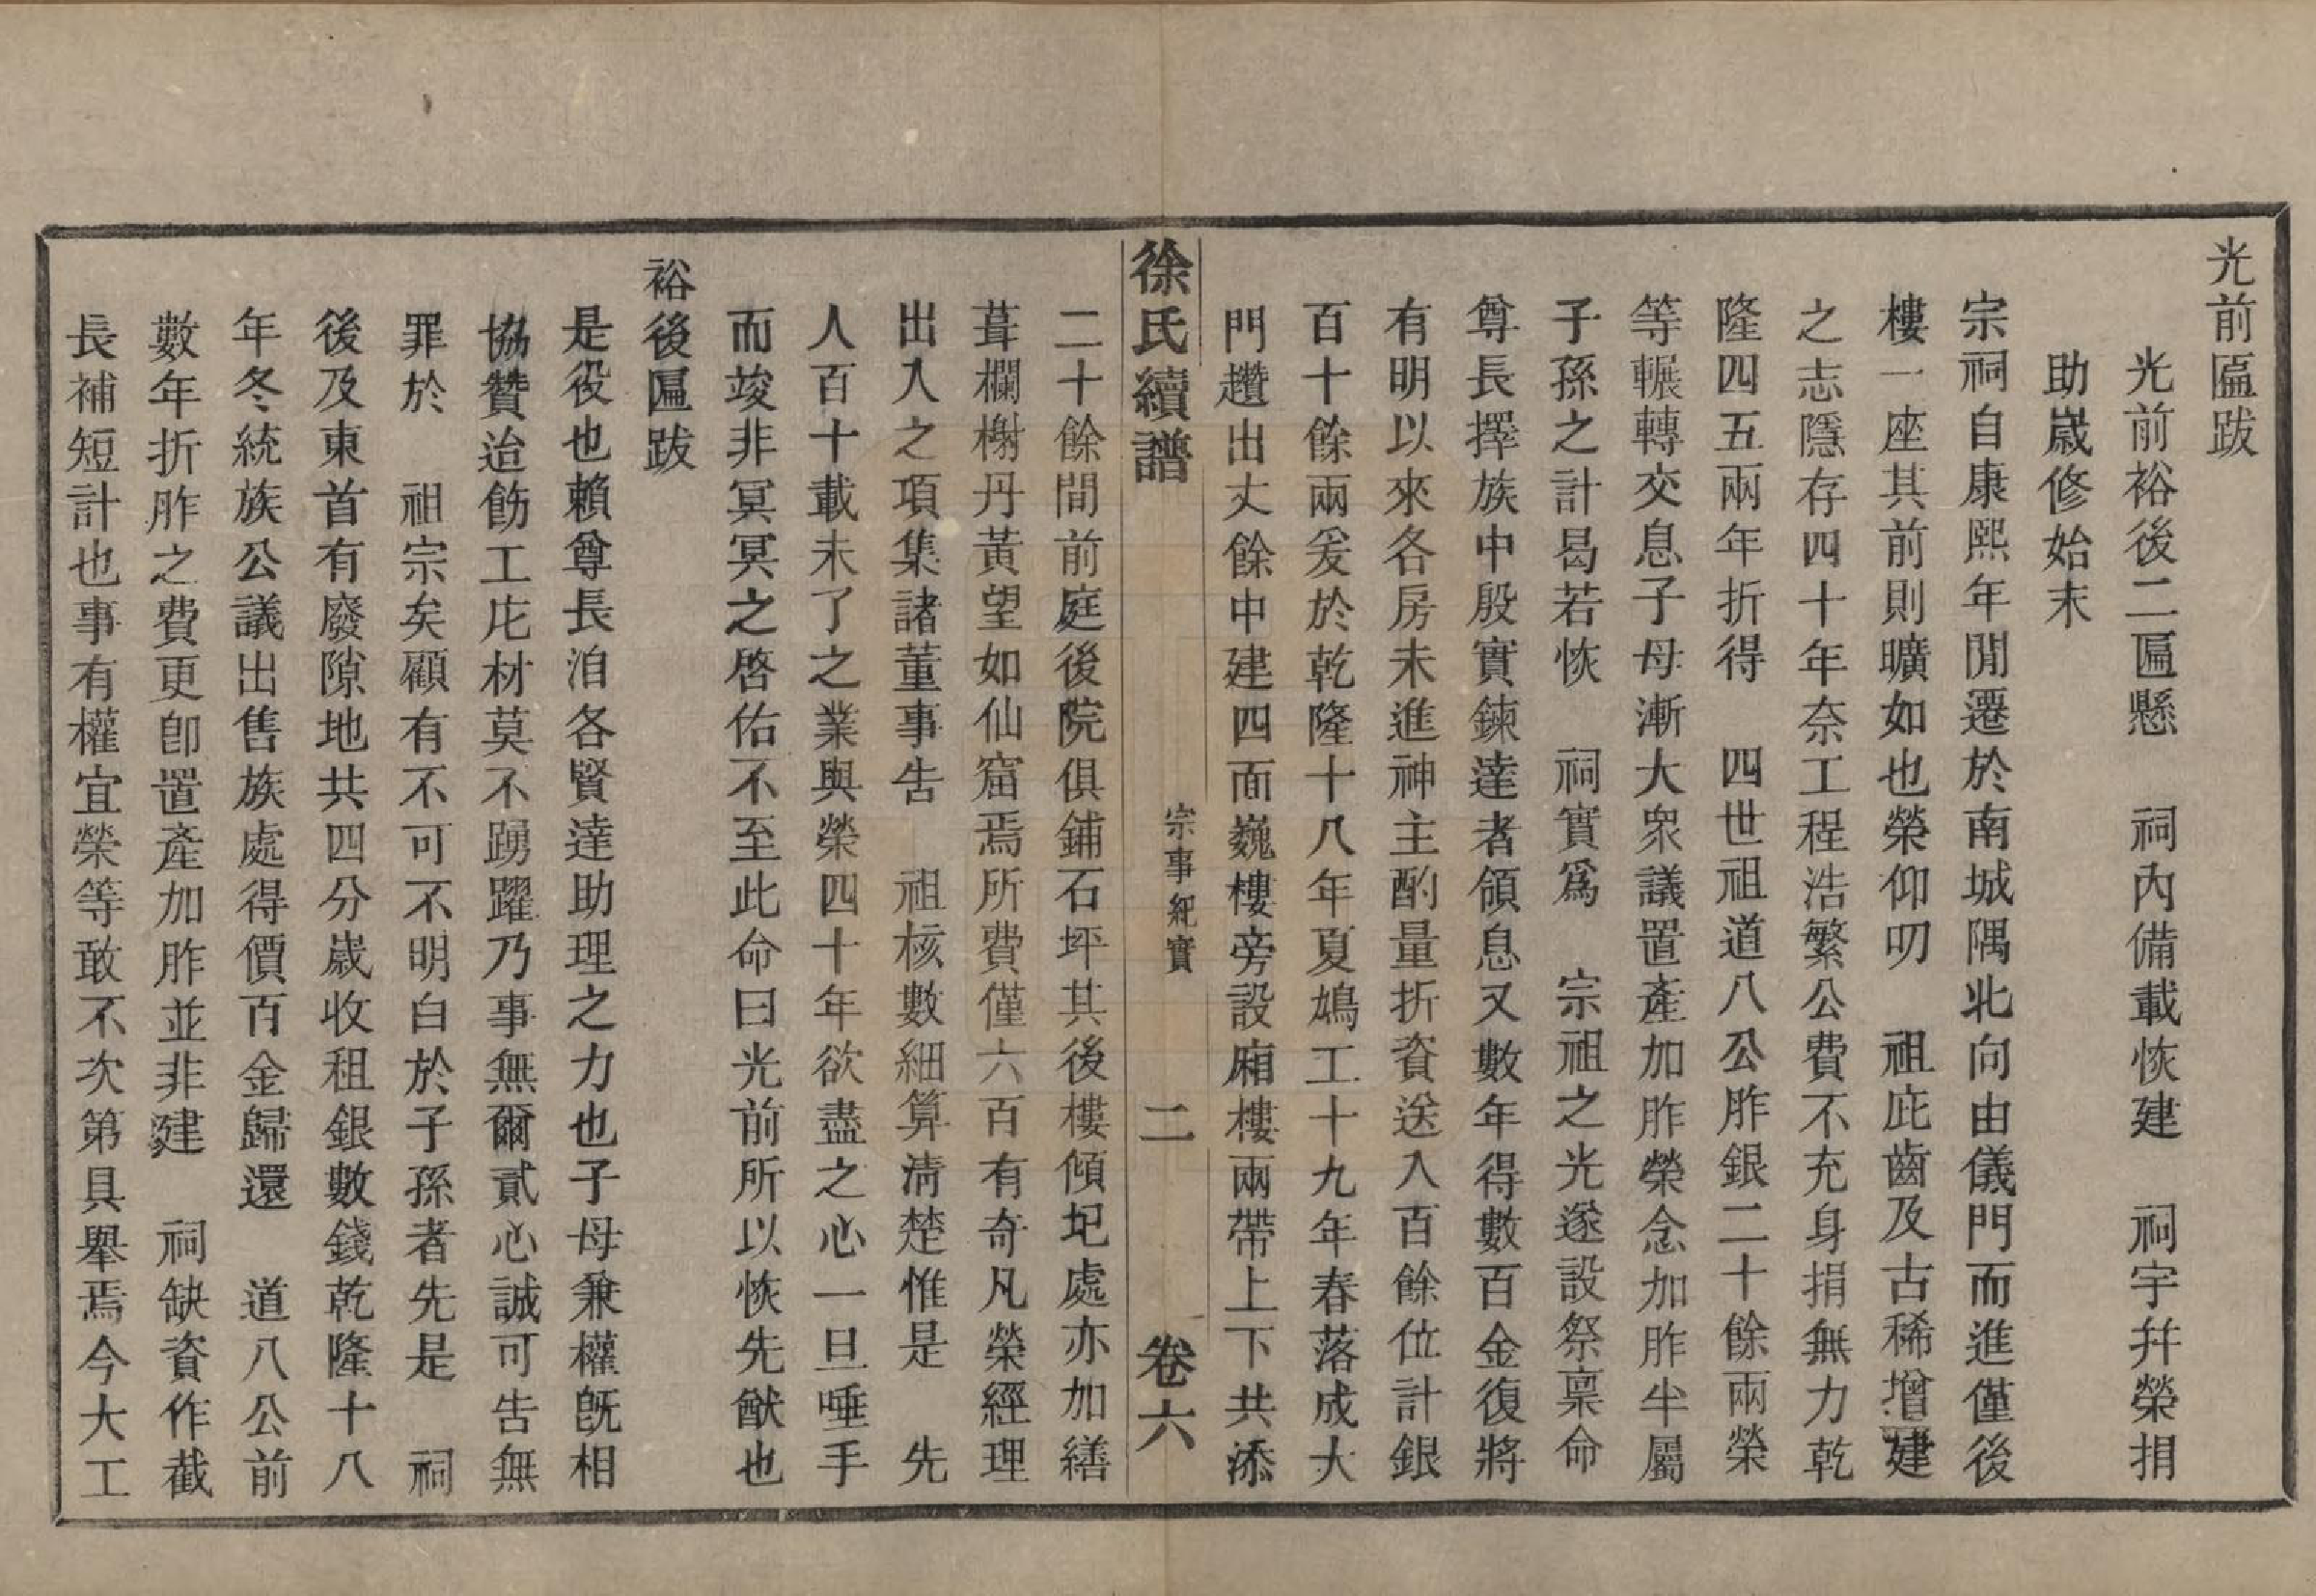 光前匾跋
光前裕後二匾懸　祠內備載恢建　祠宇幷榮捐
助歲修始末
宗祠自康熙年閒遷於南城隅北向由儀門而進僅後
樓一座其前則曠如也榮仰叨　祖庇齒及古稀增建
之志隱存四十年奈工程浩繁公費不充身捐無力乾
隆四五兩年折得　四世祖道八公胙銀二十餘兩榮
等輾轉交息子母漸大衆議置產加胙榮念加胙半屬
子孫之計曷若恢　祠實爲　宗祖之光遂設祭稟命
尊長擇族中殷實鍊達者領息又數年得數百金復將
有明以來各房未進神主酌量折資送入百餘位計銀
百十餘兩爰於乾隆十八年夏鳩工十九年春落成大
門趲出丈餘中建四面巍樓旁設廂樓兩帶上下共添
徐氏續譜　宗事紀實　二　卷六
二十餘間前庭後院俱鋪石坪其後樓傾圮處亦加繕
葺欄榭丹黃望如仙窟焉所費僅六百有奇凡榮經理
出入之項集諸董事告　祖核數細算清楚惟是　先
人百十載未了之業與榮四十年欲盡之心一旦唾手
而竣非冥冥之啓佑不至此命曰光前所以恢先猷也
裕後匾跋
是役也賴尊長洎各賢達助理之力也子母兼權旣相
協贊迨飭工庀材莫不踴躍乃事無爾貳心誠可告無
罪於　祖宗矣顧有不可不明白於子孫者先是　祠
後及東首有廢隙地共四分歲收租銀數錢乾隆十八
年冬統族公議出售族處得價百金歸還　道八公前
數年折胙之費更卽置產加胙並非建　祠缺資作截
長補短計也事有權宜榮等敢不次第具舉焉今大工